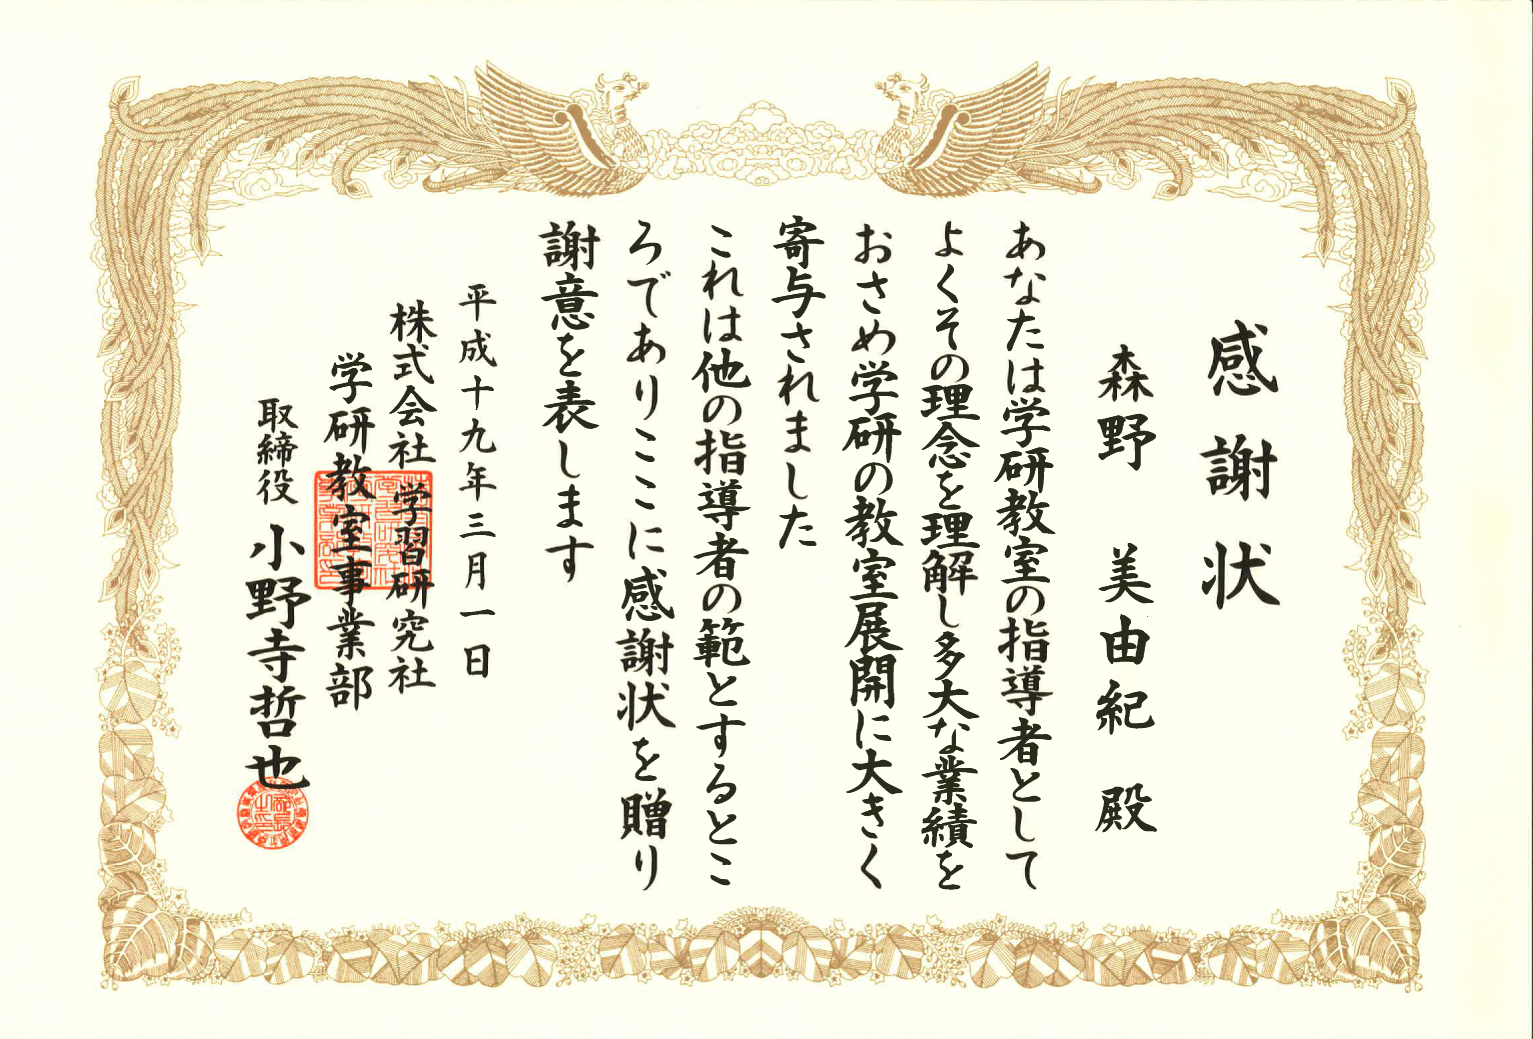 感謝状
森野　美由紀　殿
あなたは学研教室の指導者として
よくその理念を理解し多大な業績を
おさめ学研の教室展開に大きく
寄与されました
これは他の指導者の範とするとこ
ろでありここに感謝状を贈り
謝意を表します
平成十九年三月一日
株式会社　学習研究社
学研教室事業部
取締役　小野寺哲也